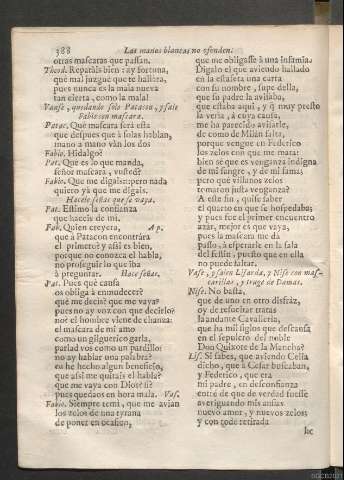 388 Las manos blancas no ofenden:
otras mascaras que passan.
Theod. Reparais bien: ay fortuna,
què mal juzguè que te hallàra,
pues nunca es la mala nueva
tan cierta, como la mala!
Vanse, quedando sòlo Patacon, y sale
Fabio con mascara.
Patac. Què mascara serà esta
que despues que à solas hablan,
mano à mano van los dos
Fabio. Hidalgo?
Pat. Què es lo que manda,
señor mascara, vusted?
Fabio. Que me digais: pero nada
quiero yà que me digais.
Hacele señas que se vaya.
Pat. Estimo la confianza
que haceis de mi.
Fab. Quien creyera, Ap.
que à Patacon encontràra
el primero? y assi es bien,
porque no conozca el habla,
no proseguir lo que iba
à preguntar. Hace señas.
Pat. Pues què causa
os obliga à enmudecer?
què me decis? que me vaya?
pues no ay voz con que decirlo?
no? el hombre viene de chanza:
el mascara de mi amo
como un gilguerico garla,
parlad vos como un pardillo:
no ay hablar una palabra?
os he hecho algun beneficio,
que assi me quitais el habla?
que me vaya con Dios? si?
pues quedaos en hora mala. Vas.
Fabio. Siempre temì, que me avian
los zelos de una tyrana
de poner en ocasion,
que me obligasse à una infamia.
Digalo el que aviendo hallado
en la estafeta una carta
con su nombre, supe della,
que su padre la avisaba,
que estaba aqui, y q̃ muy presto
la veria, à cuya causa,
me ha parecido avisarle,
de como de Milàn falta,
porque vengue en Federico
los zelos con que me mata:
bien sè que es venganza indigna
de mi sangre, y de mi fama;
pero què villanos zelos
tomaron justa venganza?
A este fin, quise saber
el quarto en que se hospedaba;
y pues fue el primer encuentro
azar, mejor es que vaya,
pues la mascara me dà
passo, à esperarle en la sala
del festin, puesto que en ella
no puede faltar.
Vase, y salen Lisarda, y Nise con mas-
carillas, y trage de Damas.
Nise. No basta,
que de uno en otro disfràz,
oy de resucitar tratas
la andante Cavalleria,
que ha mil siglos que descansa
en el sepulcro del noble
Don Quixote de la Mancha?
Lis. Si sabes, que aviendo Celia
dicho, que à Cesar buscaban,
y Federico, que era
mi padre, en desconfianza
entrè de que de verdad fuesse
averiguando mis ansias
nuevo amor, y nuevos zelos;
y con todo retirada